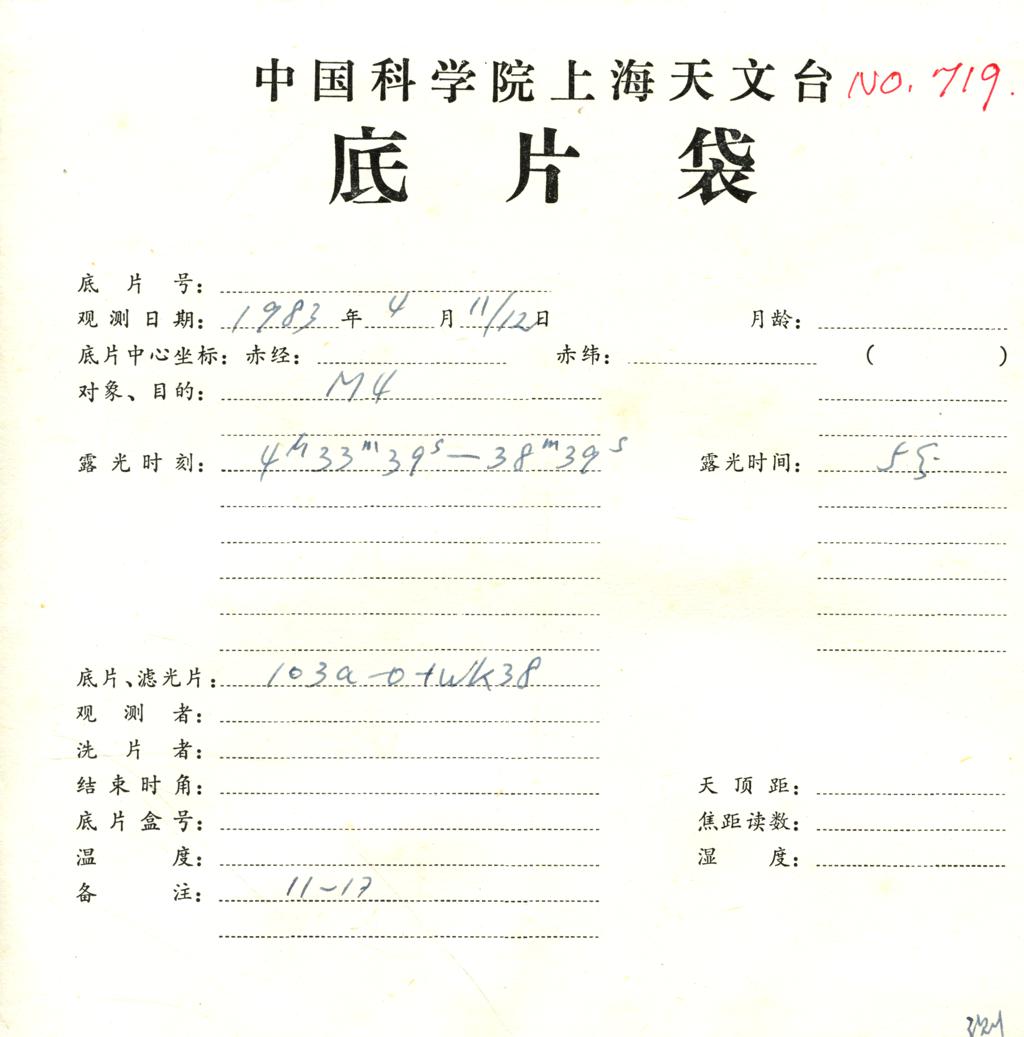 中国科学院上海天文台 NO. 719.
底片袋
底片号：
观测日期：1983年4月11/12日 月龄：
底片中心坐标：赤经： 赤纬： （ ）
对象、目的：M4
露光时刻：4ʰ33ᵐ39ˢ—38ᵐ39ˢ 露光时间：5分
底片、滤光片：103a-O+WK38
观测者：
洗片者：
结束时角： 天顶距：
底片盒号： 焦距读数：
温度： 湿度：
备注：11-17